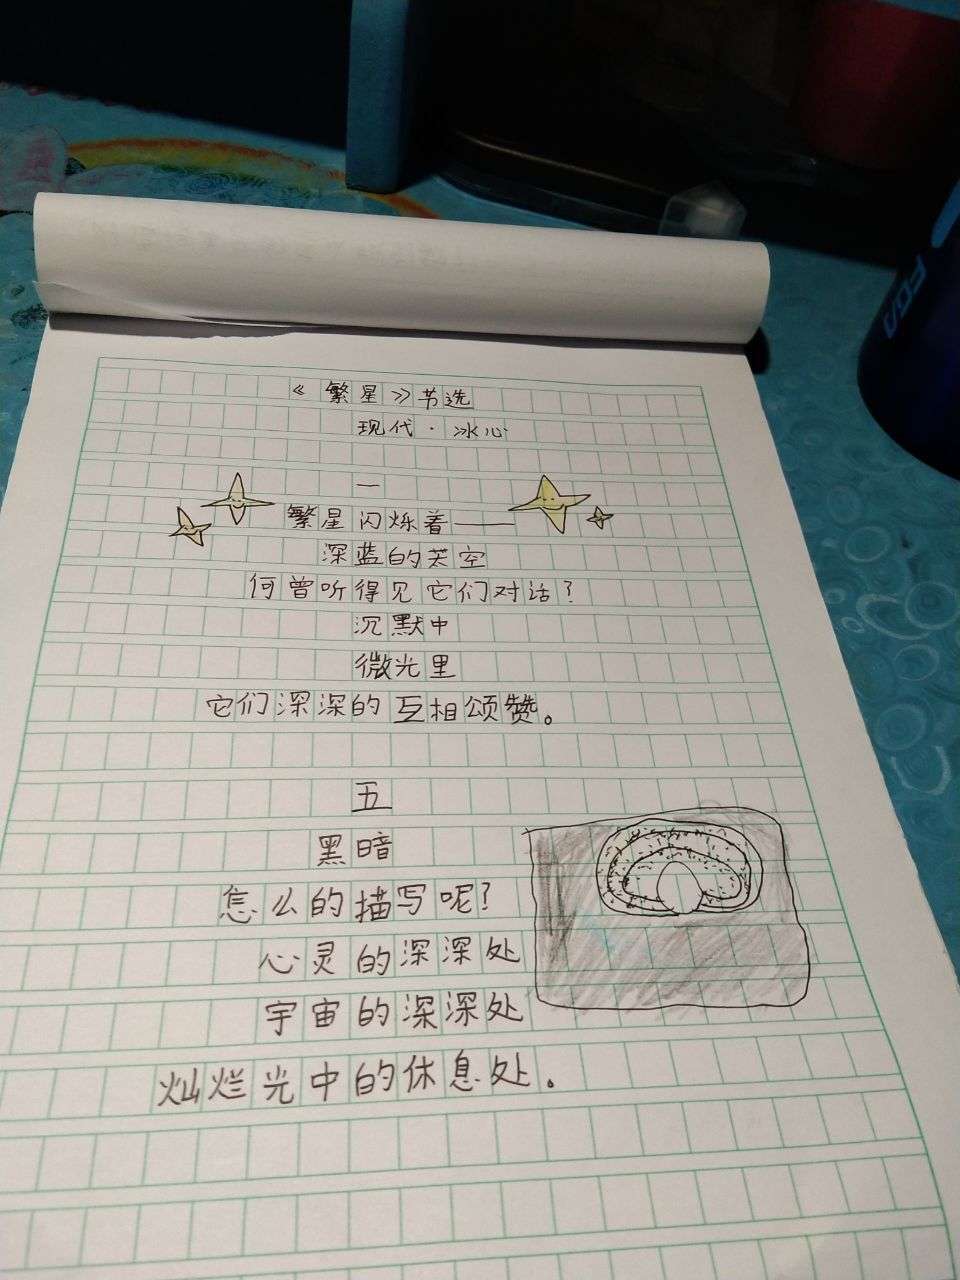 《繁星》节选
现代·冰心
一
繁星闪烁着——
深蓝的天空
何曾听得见它们对话?
沉默中
微光里
它们深深的互相颂赞。
五
黑暗
怎么的描写呢?
心灵的深深处
宇宙的深深处
灿烂光中的休息处。